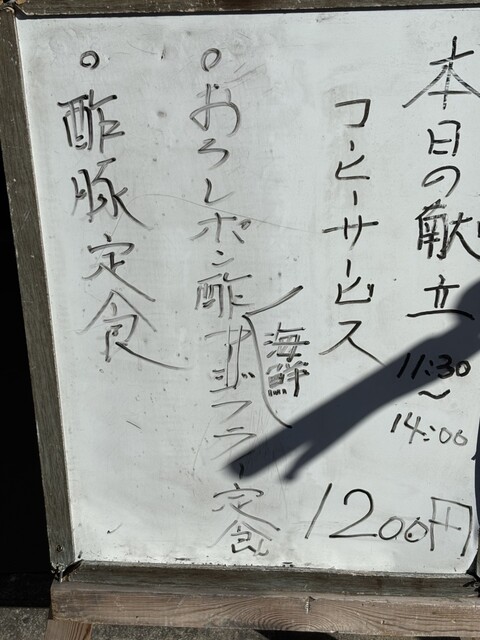 本日の献立
11:30
〜
14:00
コーヒーサービス
1200円
○おろしポン酢
海鮮
フライ定食
○酢豚定食